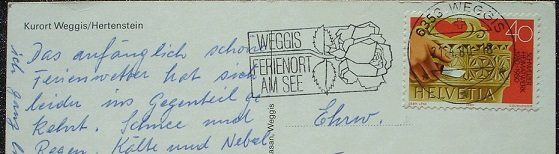 Kurort Weggis/Hertenstein
Das anfänglich schöne
Ferienwetter hat sich
leider ins Gegenteil ge
kehrt. Schnee und
Regen, Kälte und Nebel
ich ganz
WEGGIS
FERIENORT
AM SEE
6353 WEGGIS
40
HELVETIA
Ehrw.
Weggis